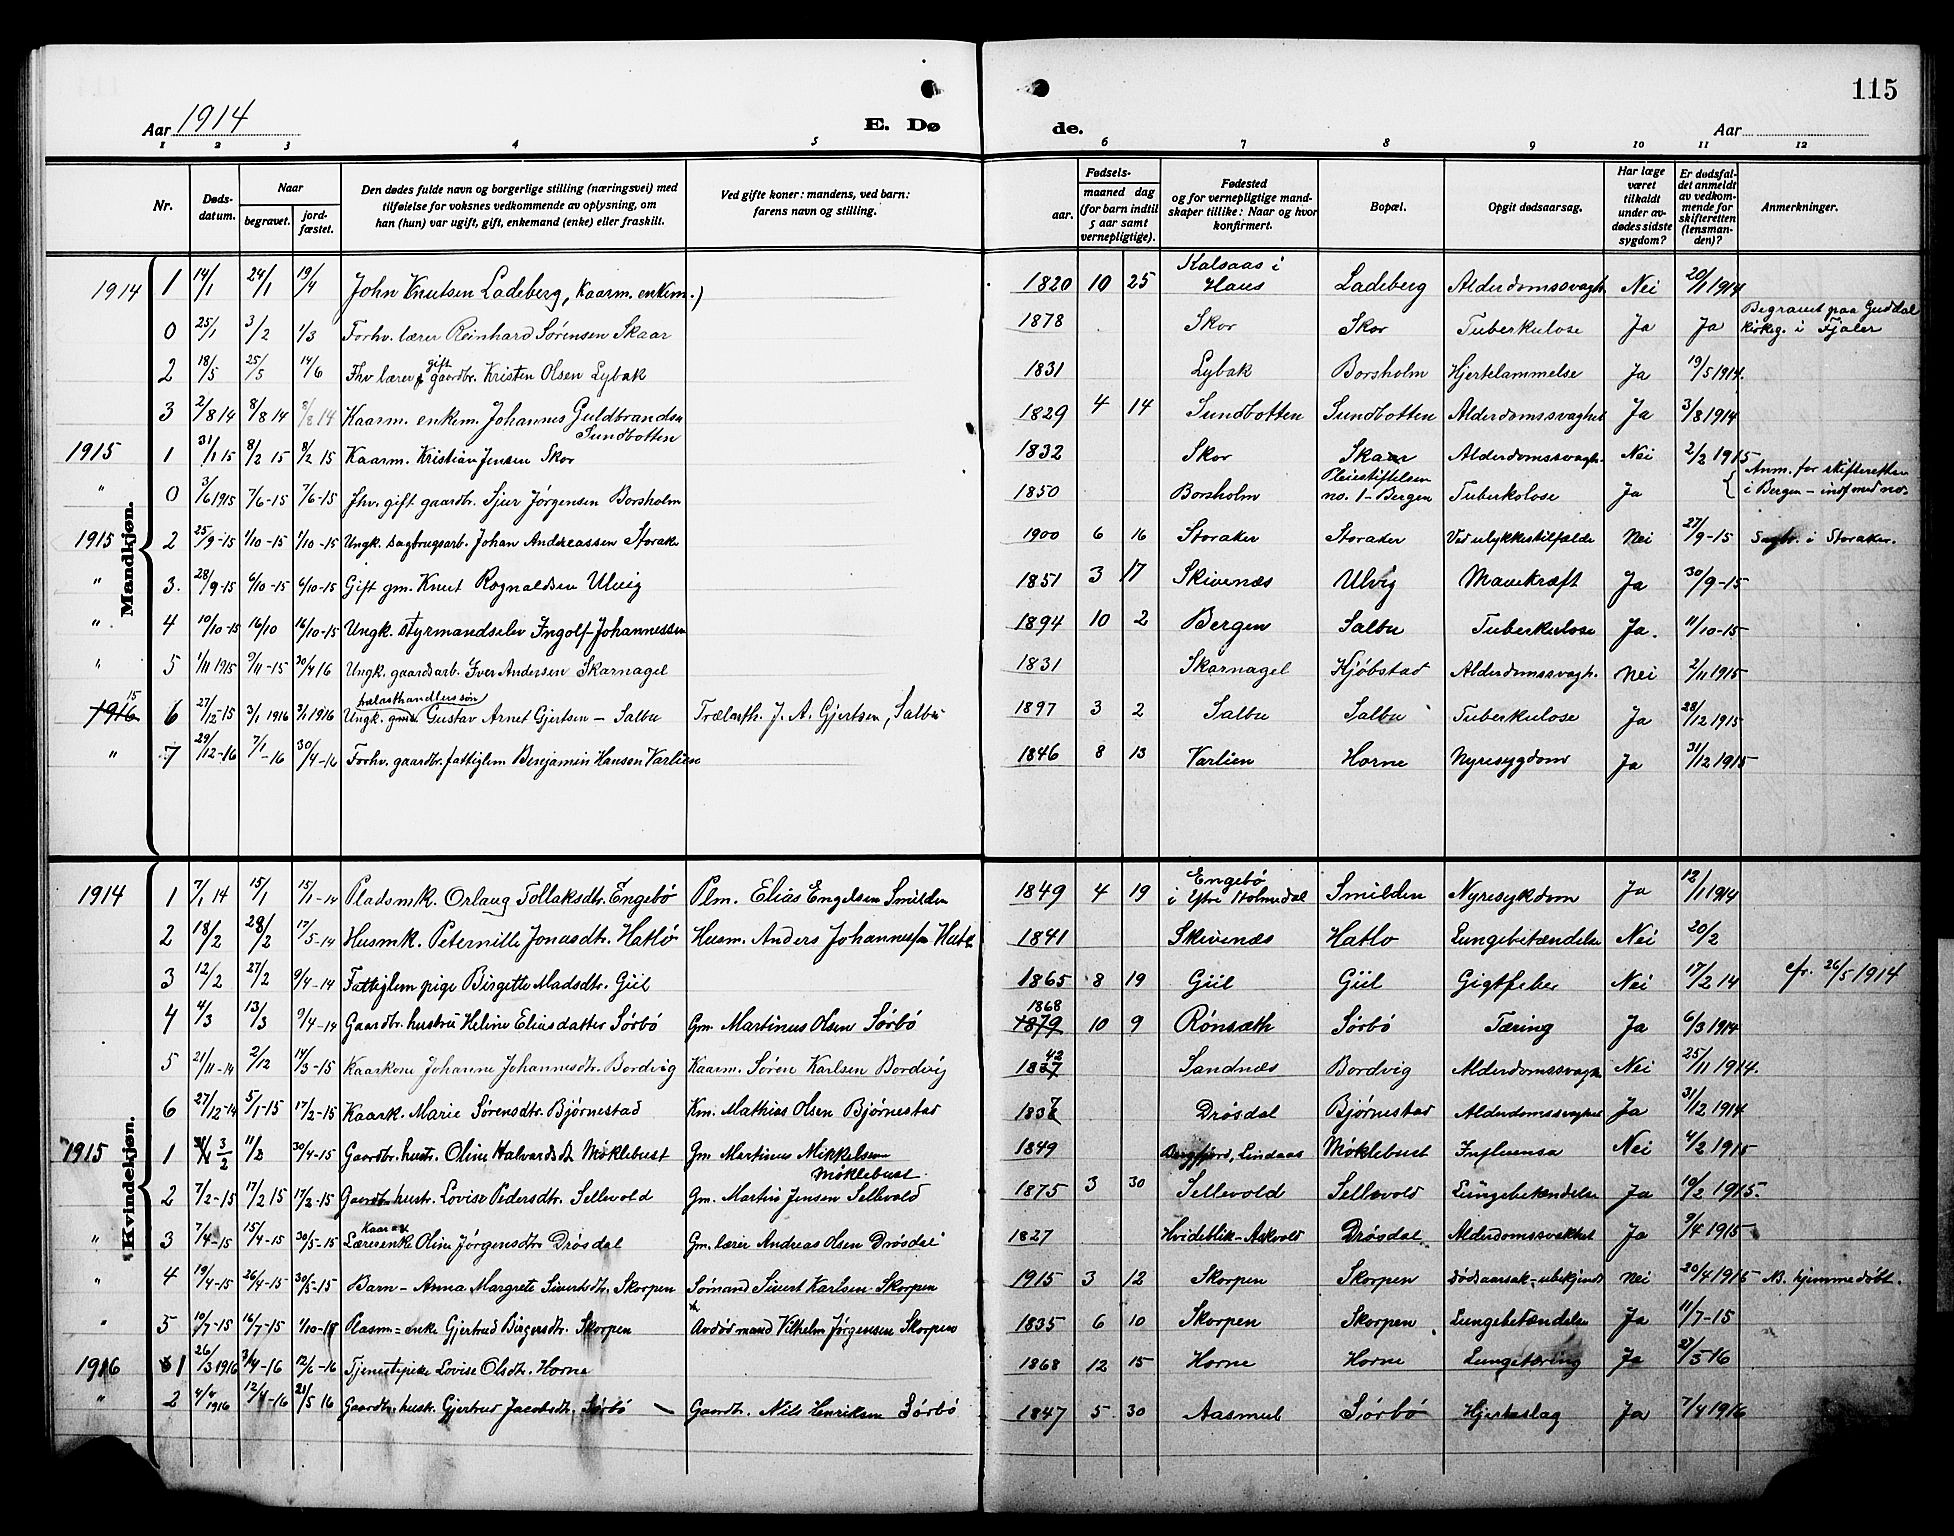 115
Aar 1914 E. Dø de. Aar
1 2 3 4 5 6 7 8 9 10 11 12
Nr. Døds-datum. Naar begravet. jord-fæstet. Den dødes fulde navn og borgerlige stilling (næringsvei) med tilføielse for voksnes vedkommende av oplysning, om han (hun) var ugift, gift, enkemand (enke) eller fraskilt. Ved gifte koner: mandens, ved barn: farens navn og stilling. Fødsels- aar. maaned dag (for barn indtil 5 aar samt vernepligtige). Fødested og for vernepligtige mand-skaper tillike: Naar og hvor konfirmert. Bopæl. Opgit dødsaarsag. Har læge været tilkaldt under av-dødes sidste sygdom? Er dødsfal-det anmeldt av vedkom-mende for skifteretten (lensman-den)? Anmerkninger.
Mandkjøn.
1914 1 14/1 24/1 19/4 John Knutsen Ladeberg, Kaarm. enkem.) 1820 10 25 Kalsaas i Haus Ladeberg Alderdomssvagh. Nei 20/1 1914
0 25/1 3/2 1/3 Forhv. lærer Reinhard Sørensen Skaar 1878 Skor Skor Tuberkulose Ja Ja Begravet paa Guddal kirkeg. i Fjaler
2 18/5 25/5 14/6 Fhv lærer gift gaardbr. Kristen Olsen Lybak 1831 Lybak Borsholm Hjertelammelse Ja 19/5 1914.
3 2/8 14 8/8 14 8/8 14 Kaarm. enkem. Johannes Guldbrandsn Sundbotten 1829 4 14 Sundbotten Sundbotten Alderdomssvaghet Ja 3/8 1914
1915 1 31/1 15 8/2 15 8/2 15 Kaarm. Kristian Jensen Skor 1832 Skor Skaar Alderdomssvagh. Nei 2/2 1915
" 0 3/6 1915 7/6-15 7/6-15 Fhv. gift gaardbr. Sjur Jørgensen Borsholm 1850 Borsholm Pleiestiftelsen no. 1 - Bergen Tuberkolose Ja Anm. for skifteretten i Bergen -
1915 2 25/9-15 1/10-15 1/10-15 Ungk. sagbrugsarb. Johan Andreassen Storaker 1900 6 16 Storaker Storaker Ved ulykkestilfælde Nei 27/9-15 Sagbr. i Storaker.
" 3. 28/9-15 6/10-15 6/10-15 Gift gm. Knut Rognaldsen Ulvig 1851 3 17 Skivenæs Ulvig Mavekræft Ja 30/9-15
" 4 10/10-15 16/10 16/10-15 Ungk. styrmandselev Ingolf Johannessen 1894 10 2 Bergen Salbu Tuberkulose Ja. 11/10-15
" 5 1/11 1915 9/11-15 30/4 16 Ungk. gaardsarb. Iver Andersen Skarnagel 1831 Skarnagel Kjøbstad Alderdomssvagh. Nei 2/11 1915
1916 15 6 27/12-15 3/1 1916 3/1 1916 Ungk. Gustav Arnet Gjertsen - Salbu Trælasth. J. A. Gjertsen, Salbu 1897 3 2 Salbu Salbu Tuberkulose Ja 28/12 1915
" 7 29/12-16 7/1-16 30/4-16 Forhv. gaardbr. fattiglem Benjamin Hansen Varlien 1846 8 13 Varlien Horne Nyresygdom Ja 31/12 1915
Kvindekjøn.
1914 1 7/1 14 15/1 15/1-14 Pladsmk. Orlaug Tollaksdtr. Engebø Plm. Elias Engelsen Smilden 1849 4 19 Engebø i Ytre Holmedal Smilden Nyresykdom Ja 12/1 1914
2 18/2 28/2 17/5-14 Husmk. Peternille Jonasdtr. Hatlø Husm. Anders Johannessen Hatl 1841 Skivenæs Hatlo Lungebetændelse Nei 20/2
3 12/2 27/2 9/4-14 Fattiglem pige Birgitte Madsdtr. Giil 1865 8 19 Giil Giil Gigtfeber Nei 17/2 14 cfr. 26/5 1914
4 4/3 13/3 9/4-14 Gaardbr. hustru Heline Eliasdatter Sørbø Gm. Martinus Olsen Sørbø 1868 1879 10 9 Rønsæth Sørbø Tæring Ja 6/3 1914
5 21/11-14 2/12 14/3-15 Kaarkone Johanne Johannesdtr. Bordvig Kaarm. Søren Karlsen Bordvig 1837 42 Sandnæs Bordvig Alderdomssvagh Nei 25/11 1914.
6 27/12-14 5/1-15 17/2-15 Kaark. Marie Sørensdtr. Bjørnestad Km. Mathias Olsen Bjørnestad 1837 Drøsdal Bjørnestad Alderdomssvaghet Ja 31/12 1914
1915 1 3/2 11/2 30/4-15 Gaardbr. hustr. Oline Halvardsdt Møklebust Gm Martinus Mikkelsen Møklebust 1849 Lindaas Møklebust Influensa Nei 4/2 1915
2 7/2-15 17/2 15 17/2-15 Gaardbr. hustr. Lovise Pedersdtr. Sellevold Gm. Martin Jensen Sellevold 1875 3 30 Sellevold Sellevold Lungebetændelse Ja 10/2 1915.
" 3 7/4-15 15/4-15 30/5-15 Lærerenke Oline Jørgensdtr Drøsdal Gm. lærer Andreas Olsen Drøsdal 1827 Hvideblik-Askvold Drøsdal Alderdomssvakhet Ja 9/4 1915
" 4 19/4-15 26/4-15 30/5-15 Barn - Anna Margrete Sivertsdtr. Skorpen Sømand Sivert Karlsen Skorpen 1915 3 12 Skorpen Skorpen Dødsaarsak ubekjendt Nei 20/4 1915 NB. hjemmedøbt.
" 5 10/7-15 16/7-15 1/10-15 Plasm=enke Gjertrud Birgersdtr. Skorpen Avdød mand Vilhelm Jørgensen Skorpen 1835 6 10 Skorpen Skorpen Lungebetændelse Ja 11/7-15
1916 1 26/3 1916 3/4-16 12/6-16 Tjenestepike Lovise Olsdtr. Horne 1868 12 15 Horne Horne Lungetæring Ja 27/3 16
" 2 4/4 1916 12/4-16 21/5 16 Gaardbr. hustr. Gjertrud Jacobsdtr. Sørbø Gaardbr. Nils Henriksen Sørbø 1847 5 30 Aasmul Sørbø Hjerteslag Ja 7/4 1916